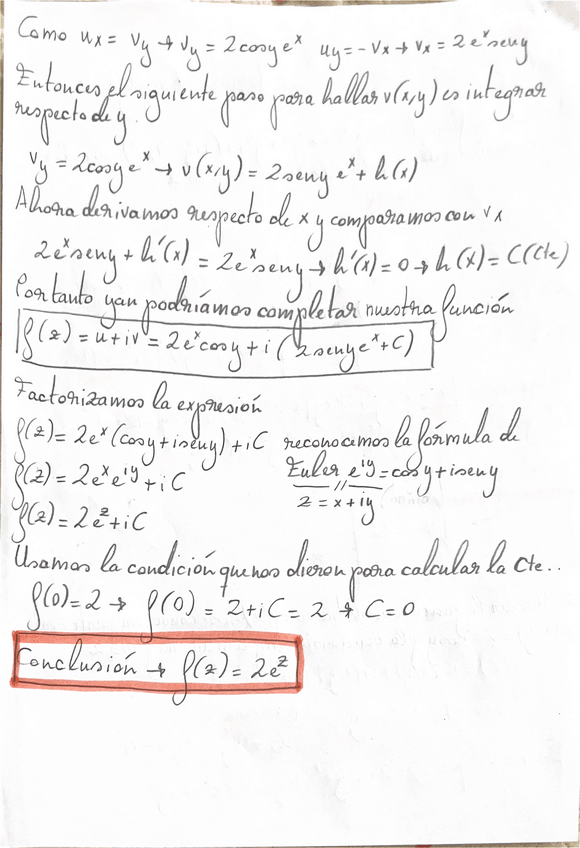 Como ux = vy → vy = 2cosy e^x   uy = -vx → vx = 2e^x seny
Entonces el siguiente paso para hallar v(x,y) es integrar
respecto de y.
vy = 2cosy e^x → v(x,y) = 2seny e^x + h(x)
Ahora derivamos respecto de x y comparamos con vx
2e^x seny + h'(x) = 2e^x seny → h'(x) = 0 → h(x) = C(Cte)
Por tanto yan podríamos completar nuestra función
f(z) = u+iv = 2e^x cosy + i(2seny e^x + C)
Factorizamos la expresión
f(z) = 2e^x (cosy + iseny) + iC   reconocemos la fórmula de
f(z) = 2e^x e^iy + iC   Euler e^iy = cosy + iseny
z = x + iy
f(z) = 2e^z + iC
Usamos la condición que nos dieron para calcular la Cte..
f(0) = 2 → f(0) = 2 + iC = 2 → C = 0
Conclusión → f(z) = 2e^z